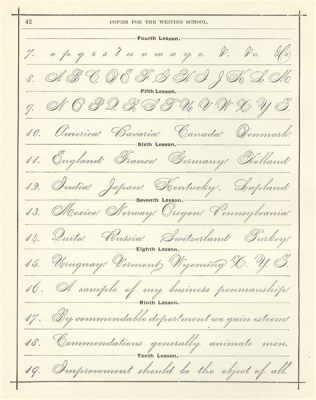 42 COPIES FOR THE WRITING SCHOOL.
Fourth Lesson.
7. o p q r s t u v w x y z
8. A B C D E F G H I J K L M
Fifth Lesson.
9. N O P Q R S T U V W X Y Z.
10. America Bavaria Canada Denmark
Sixth Lesson.
11. England France Germany Holland
12. India Japan Kentucky. Lapland
Seventh Lesson.
13. Mexico Norway Oregon Pennsylvania
14. Quito Russia Switzerland Turkey
Eighth Lesson.
15. Uruguay Vermont Wyoming X. Y Z.
16. A sample of my business penmanship
Ninth Lesson.
17. By commendable deportment we gain esteem
18. Commendations generally animate men.
Tenth Lesson.
19. Improvement should be the object of all.